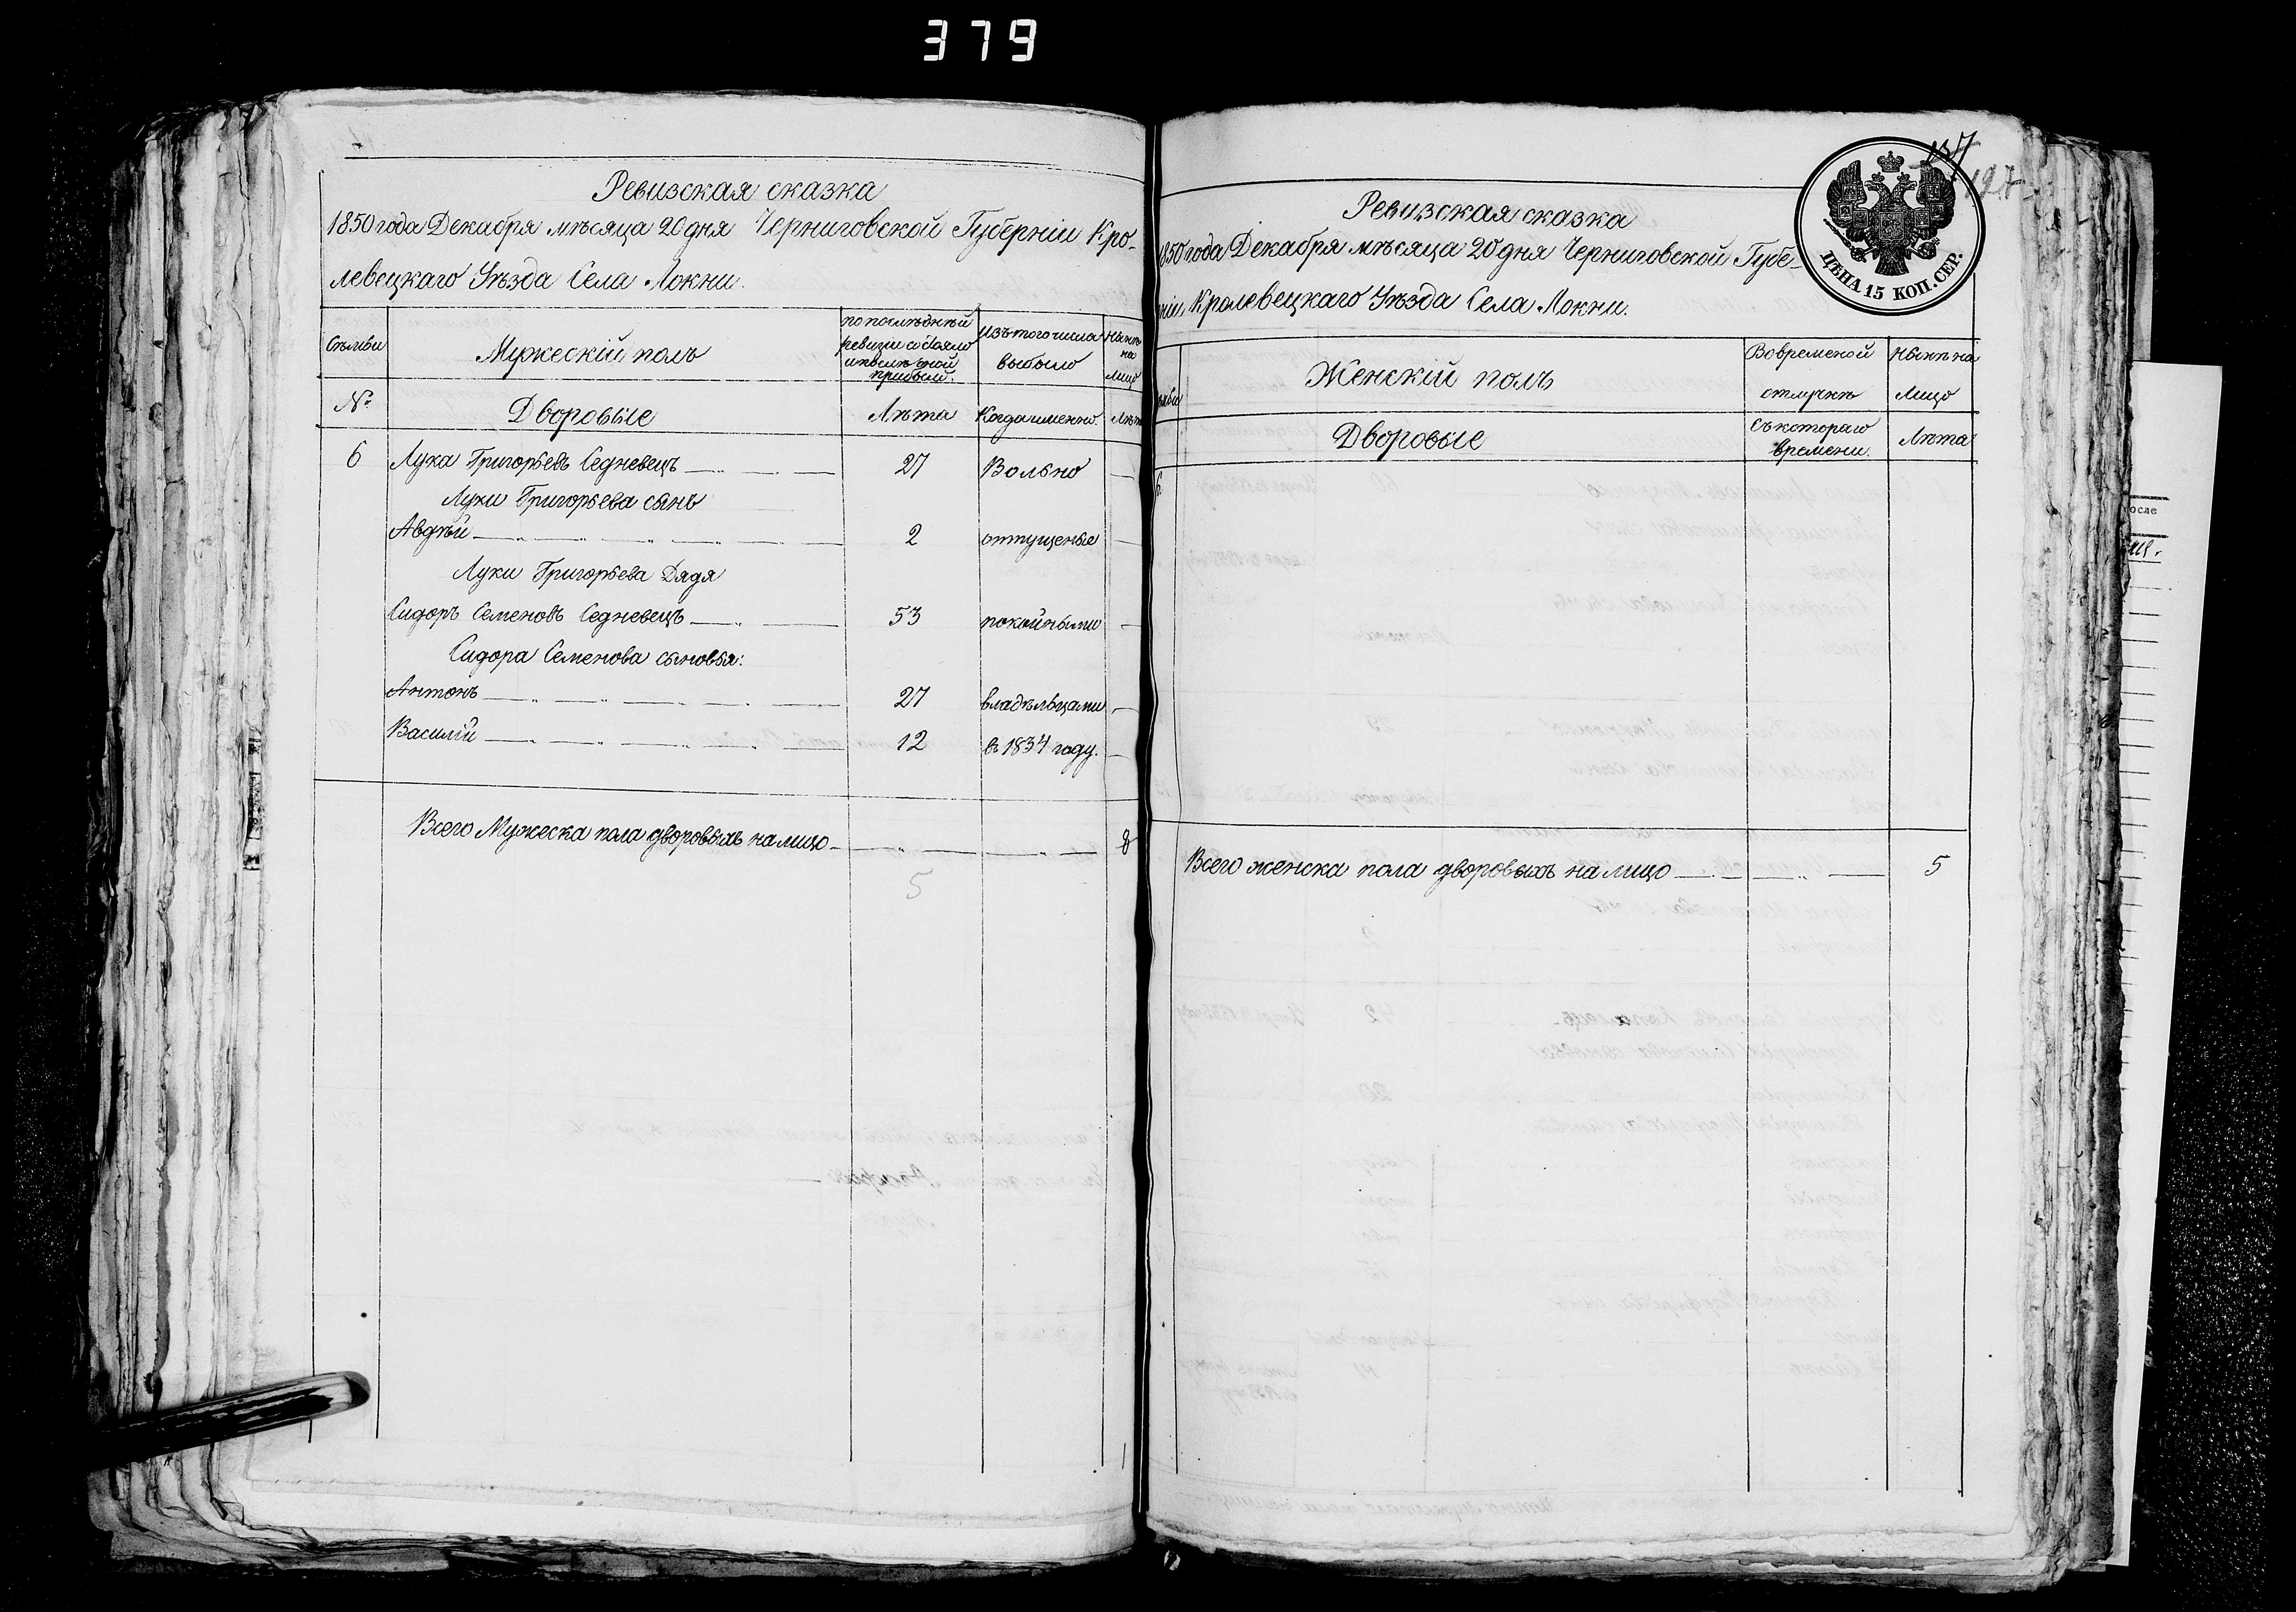 379
Ревизская сказка
1850 года Декабря мѣсяца 20 дня Черниговской Губерніи Кро-
левецкаго Уѣзда Села Локни.
Сѣмьи
Мужескій полъ
по послѣдней
ревизіи состояло
и послѣ оной
прибыло.
Изъ того числа
выбыло
Нынѣ
на
лицо
№
Дворовые
Лѣта
Когда именно.
Лѣта
6 Лука Григорьевъ Седневецъ 27 Вольно
Луки Григорьева сынъ
Авдѣй 2 отпущеные
Луки Григорьева Дядя
Сидоръ Семеновъ Седневецъ 53 покойными
Сидора Семенова сыновья:
Антонъ 27 владѣльцами
Василій 12 въ 1834 году.
Всего Мужеска пола дворовыхъ на лицо 8
5
157
127
ЦѢНА 15 КОП. СЕР.
Ревизская сказка
1850 года Декабря мѣсяца 20 дня Черниговской Губе-
ніи Кролевецкаго Уѣзда Села Локни.
Женскій полъ
Во временой
отлучкѣ
Нынѣ на
Лицо
Дворовые
Съ котораго
времени.
Лѣта
6
Всего женска пола дворовыхъ на лицо 5